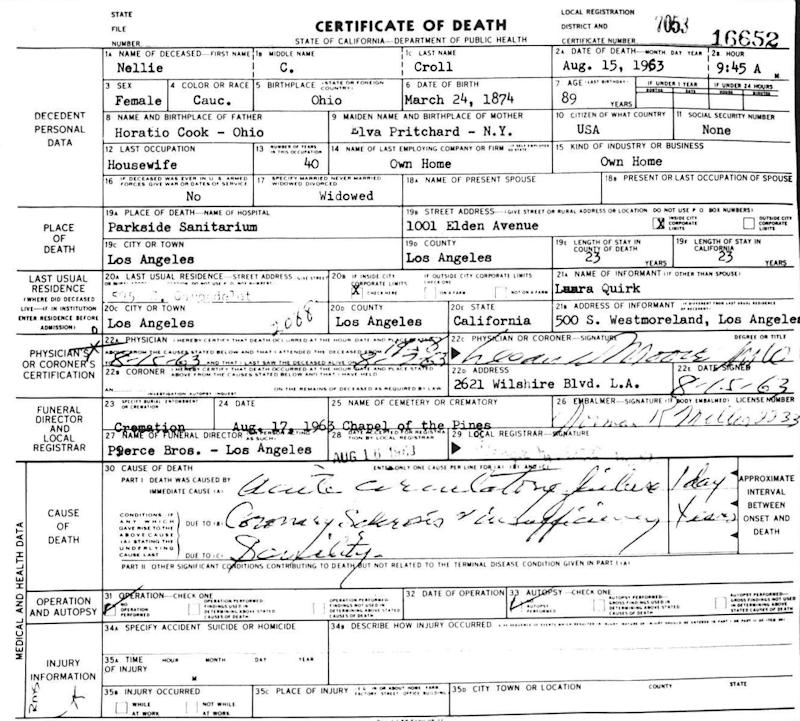 STATE FILE NUMBER
CERTIFICATE OF DEATH
STATE OF CALIFORNIA—DEPARTMENT OF PUBLIC HEALTH
LOCAL REGISTRATION DISTRICT AND CERTIFICATE NUMBER 7053 16652
DECEDENT PERSONAL DATA
1A NAME OF DECEASED—FIRST NAME 1B MIDDLE NAME 1C LAST NAME 2A DATE OF DEATH—MONTH DAY YEAR 2B HOUR
Nellie C. Croll Aug. 15, 1963 9:45 A M
3 SEX 4 COLOR OR RACE 5 BIRTHPLACE (STATE OR FOREIGN COUNTRY) 6 DATE OF BIRTH 7 AGE (LAST BIRTHDAY) IF UNDER 1 YEAR IF UNDER 24 HOURS
Female Cauc. Ohio March 24, 1874 89 YEARS
8 NAME AND BIRTHPLACE OF FATHER 9 MAIDEN NAME AND BIRTHPLACE OF MOTHER 10 CITIZEN OF WHAT COUNTRY 11 SOCIAL SECURITY NUMBER
Horatio Cook - Ohio Elva Pritchard - N.Y. USA None
12 LAST OCCUPATION 13 NUMBER OF YEARS IN THIS OCCUPATION 14 NAME OF LAST EMPLOYING COMPANY OR FIRM 15 KIND OF INDUSTRY OR BUSINESS
Housewife 40 Own Home Own Home
16 IF DECEASED WAS EVER IN U. S. ARMED FORCES GIVE WAR OR DATES OF SERVICE 17 SPECIFY MARRIED NEVER MARRIED WIDOWED DIVORCED 18A NAME OF PRESENT SPOUSE 18B PRESENT OR LAST OCCUPATION OF SPOUSE
No Widowed
PLACE OF DEATH
19A PLACE OF DEATH—NAME OF HOSPITAL 19B STREET ADDRESS—(GIVE STREET OR RURAL ADDRESS OR LOCATION DO NOT USE P O BOX NUMBERS)
Parkside Sanitarium 1001 Elden Avenue X INSIDE CITY CORPORATE LIMITS OUTSIDE CITY CORPORATE LIMITS
19C CITY OR TOWN 19D COUNTY 19E LENGTH OF STAY IN COUNTY OF DEATH 19F LENGTH OF STAY IN CALIFORNIA
Los Angeles Los Angeles 23 YEARS 23 YEARS
LAST USUAL RESIDENCE
(WHERE DID DECEASED LIVE—IF IN INSTITUTION ENTER RESIDENCE BEFORE ADMISSION)
20A LAST USUAL RESIDENCE—STREET ADDRESS 20B IF INSIDE CITY CORPORATE LIMITS X CHECK HERE IF OUTSIDE CITY CORPORATE LIMITS CHECK ONE ON A FARM NOT ON A FARM 21A NAME OF INFORMANT (IF OTHER THAN SPOUSE)
Laura Quirk
20C CITY OR TOWN 20D COUNTY 20E STATE 21B ADDRESS OF INFORMANT
Los Angeles 2068 Los Angeles California 500 S. Westmoreland, Los Angeles
PHYSICIAN'S OR CORONER'S CERTIFICATION
22A PHYSICIAN I HEREBY CERTIFY THAT DEATH OCCURRED AT THE HOUR DATE AND PLACE STATED ABOVE FROM THE CAUSES STATED BELOW AND THAT I ATTENDED THE DECEASED 22C PHYSICIAN OR CORONER—SIGNATURE DEGREE OR TITLE
AND THAT I LAST SAW THE DECEASED ALIVE ON
22B CORONER I HEREBY CERTIFY THAT DEATH OCCURRED AT THE HOUR DATE AND PLACE STATED ABOVE FROM THE CAUSES STATED BELOW AND THAT I HAVE HELD 22D ADDRESS 22E DATE SIGNED
AN INVESTIGATION AUTOPSY INQUEST ON THE REMAINS OF DECEASED AS REQUIRED BY LAW 2621 Wilshire Blvd. L.A. 8-15-63
FUNERAL DIRECTOR AND LOCAL REGISTRAR
23 SPECIFY BURIAL ENTOMBMENT OR CREMATION 24 DATE 25 NAME OF CEMETERY OR CREMATORY 26 EMBALMER—SIGNATURE (IF BODY EMBALMED) LICENSE NUMBER
Cremation Aug. 17, 1963 Chapel of the Pines
27 NAME OF FUNERAL DIRECTOR 28 29 LOCAL REGISTRAR—SIGNATURE
Pierce Bros. - Los Angeles AUG 16 1963
MEDICAL AND HEALTH DATA
CAUSE OF DEATH
30 CAUSE OF DEATH ENTER ONLY ONE CAUSE PER LINE FOR (A) (B) AND (C)
PART I DEATH WAS CAUSED BY
IMMEDIATE CAUSE (A) Acute circulatory failure 1 day
CONDITIONS IF ANY WHICH GAVE RISE TO THE ABOVE CAUSE (A) STATING THE UNDERLYING CAUSE LAST
DUE TO (B) Coronary Sclerosis & insufficiency years
DUE TO (C) Senility.
APPROXIMATE INTERVAL BETWEEN ONSET AND DEATH
PART II OTHER SIGNIFICANT CONDITIONS CONTRIBUTING TO DEATH BUT NOT RELATED TO THE TERMINAL DISEASE CONDITION GIVEN IN PART I (A)
OPERATION AND AUTOPSY
31 OPERATION—CHECK ONE 32 DATE OF OPERATION 33 AUTOPSY—CHECK ONE
NO OPERATION PERFORMED
INJURY INFORMATION
34A SPECIFY ACCIDENT SUICIDE OR HOMICIDE 34B DESCRIBE HOW INJURY OCCURRED
35A TIME OF INJURY HOUR MONTH DAY YEAR
M
35B INJURY OCCURRED 35C PLACE OF INJURY 35D CITY TOWN OR LOCATION COUNTY STATE
WHILE AT WORK NOT WHILE AT WORK